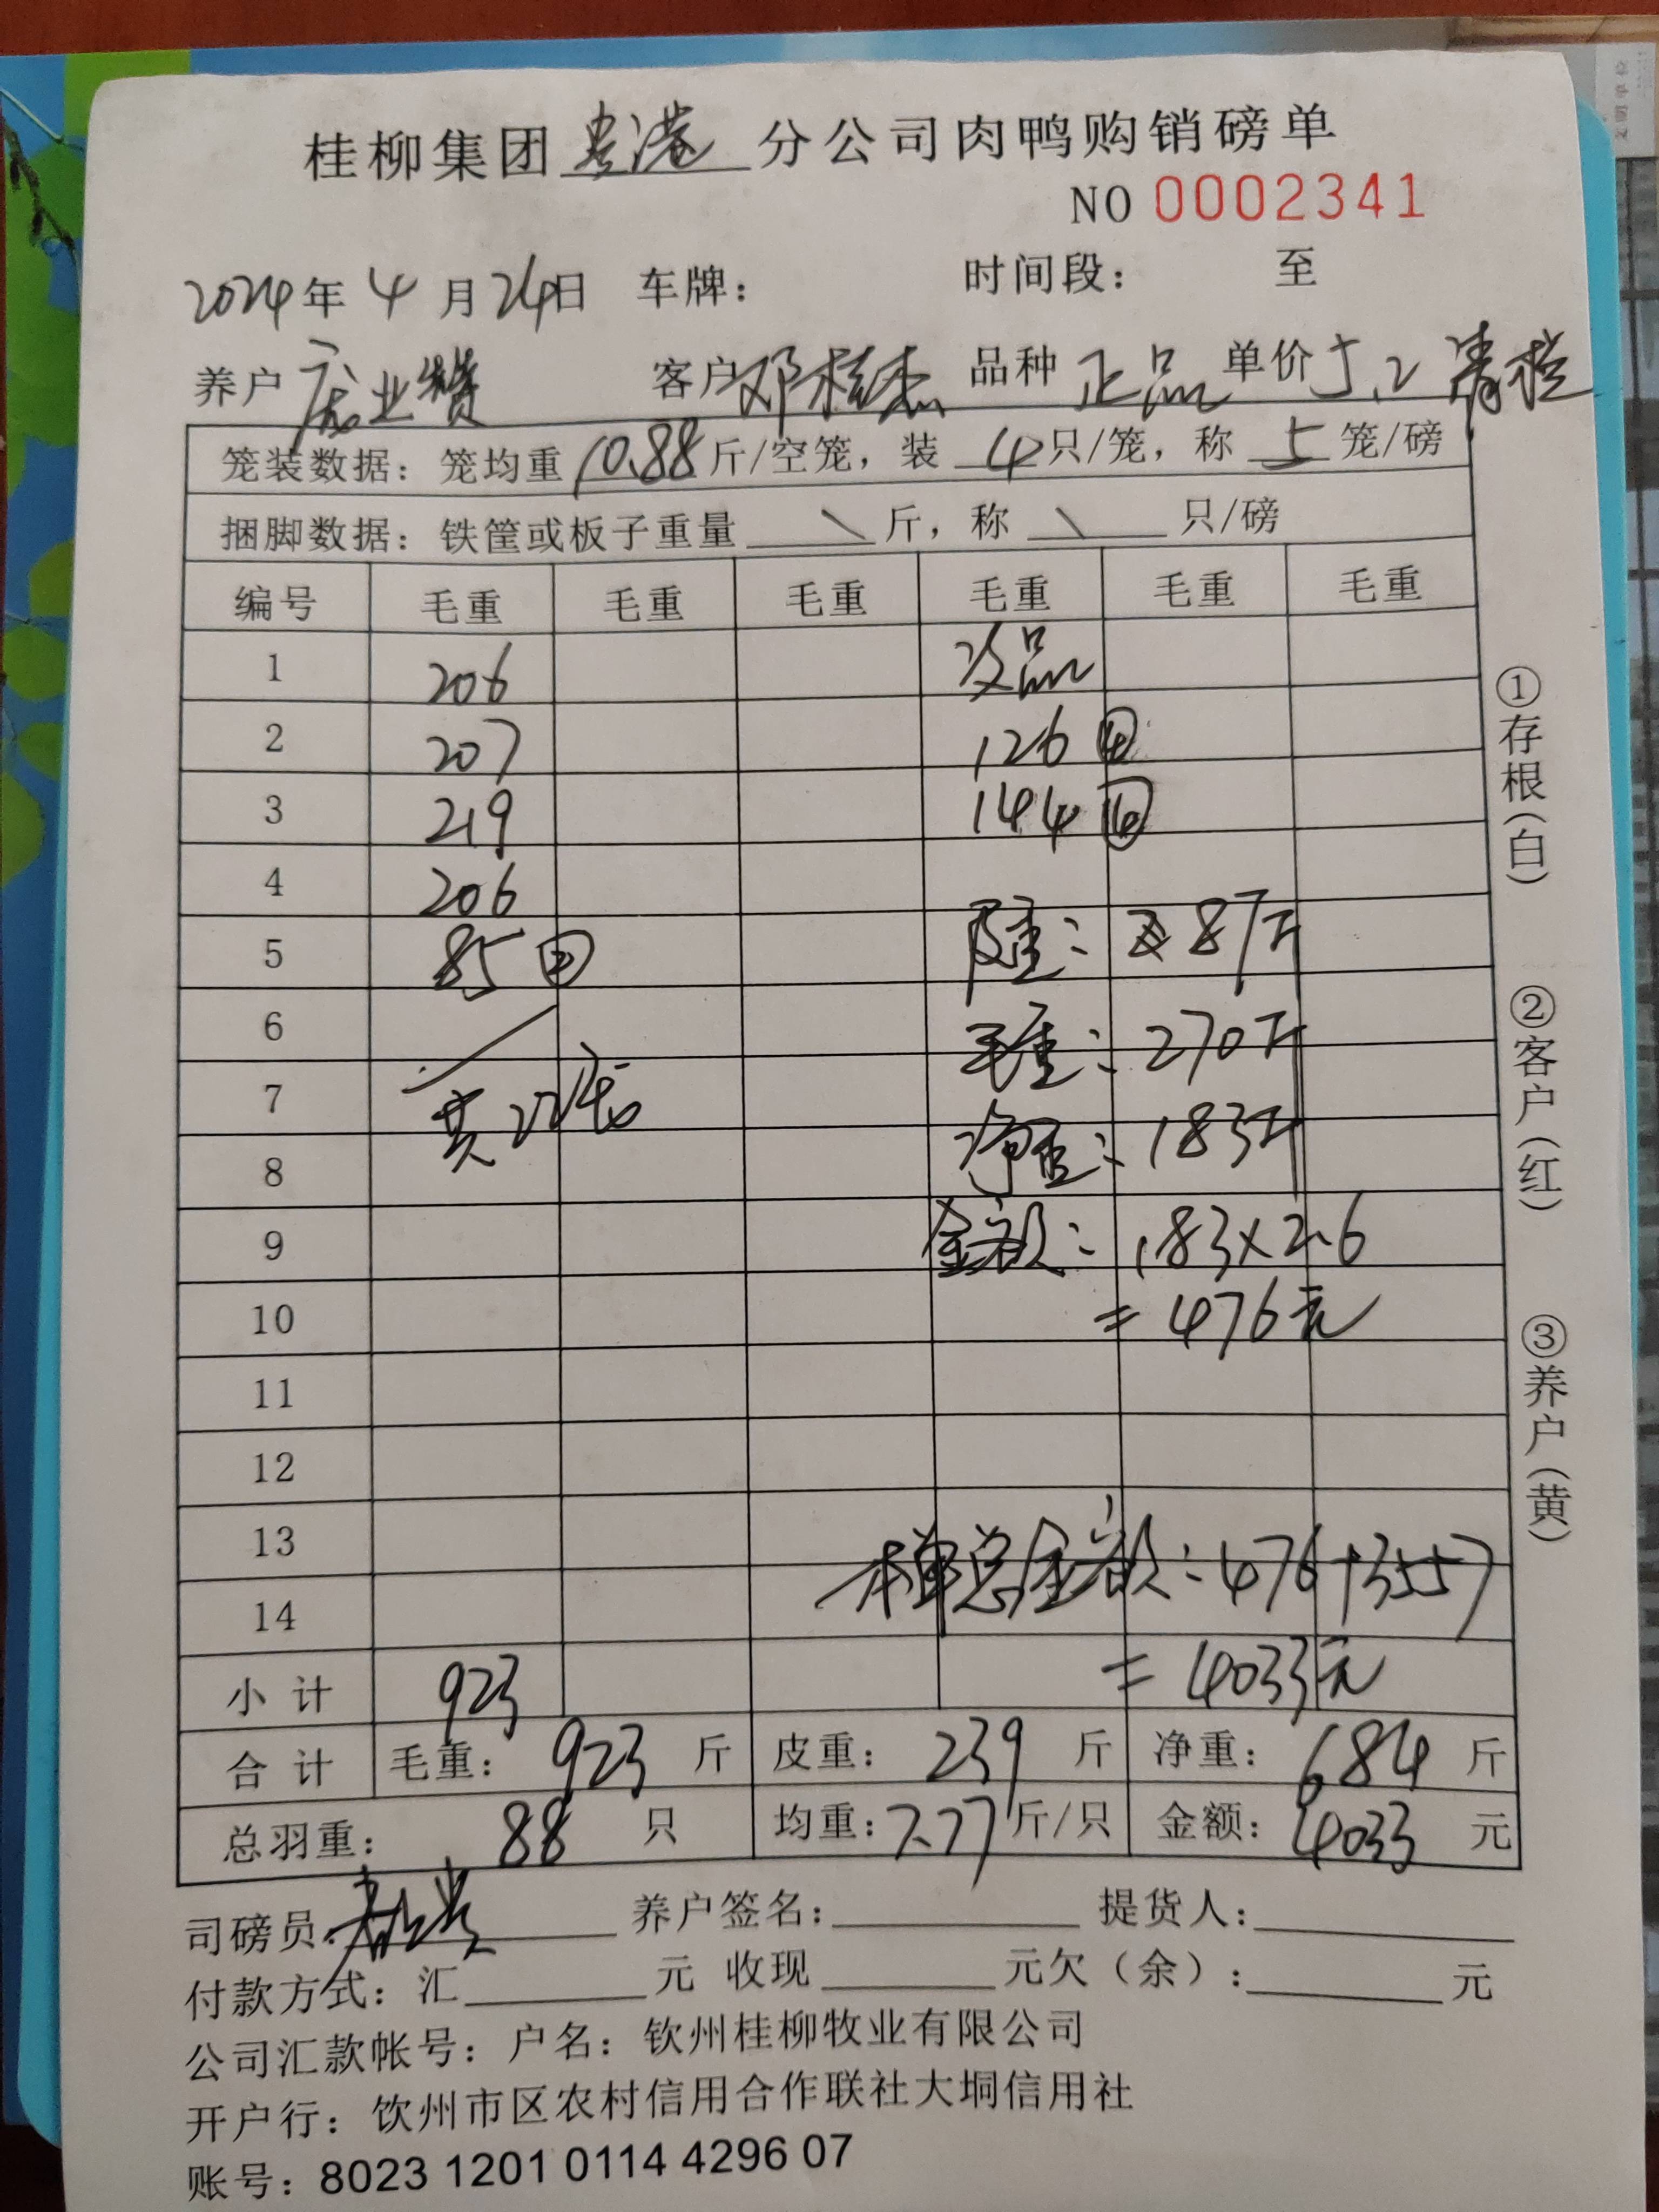 桂柳集团贵港分公司肉鸭购销磅单
NO 0002341
2024年 4 月 24日 车牌： 时间段： 至
养户 庞业赞 客户 邓桂杰 品种 正品 单价 5.2 清栏
笼装数据：笼均重 10.88 斤/空笼，装 4 只/笼，称 5 笼/磅
捆脚数据：铁筐或板子重量 \ 斤，称 \ 只/磅
编号 毛重 毛重 毛重 毛重 毛重 毛重
1 206 次品
2 207 126 ④
3 219 144 ④
4 206
5 85 ② 皮重：87斤
6 毛重：270斤
7 共22笼
8 净重：183斤
9 金额：183×2.6
10 =476元
11
12
13 本单总金额：476+3557
14
小 计 923 =4033元
合 计 毛重：923 斤 皮重：239 斤 净重：684 斤
总羽重：88 只 均重：7.77 斤/只 金额：4033 元
司磅员： 养户签名： 提货人：
付款方式：汇 元 收现 元欠（余）： 元
公司汇款帐号：户名：钦州桂柳牧业有限公司
开户行：钦州市区农村信用合作联社大垌信用社
账号：8023 1201 0114 4296 07
①存根（白）
②客户（红）
③养户（黄）